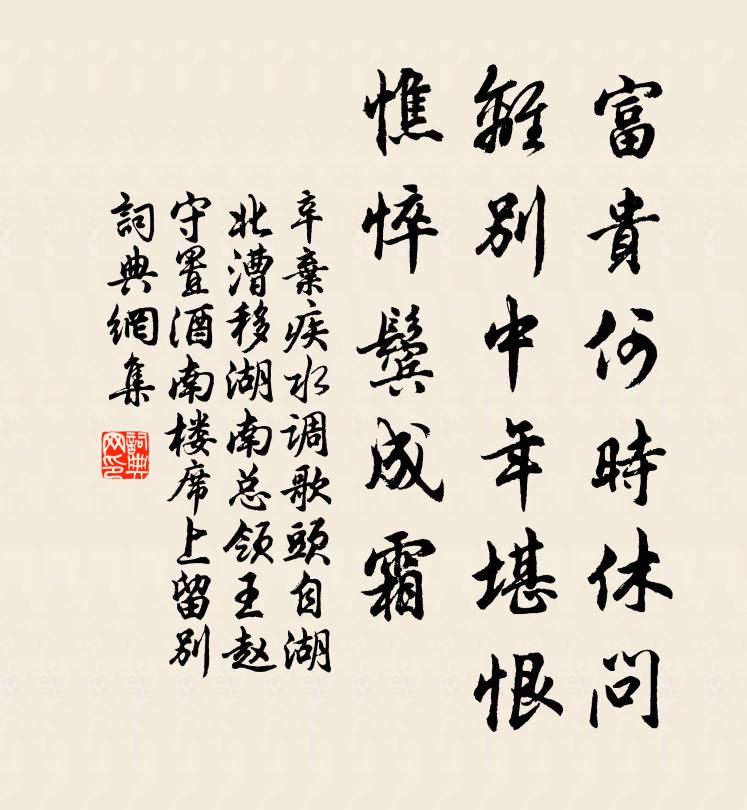 富貴何時休問
離別中年堪恨
憔悴鬢成霜
辛棄疾水调歌頭自湖
北漕移湖南总领王赵
守置酒南楼席上留别
詞典網集
詞典网印